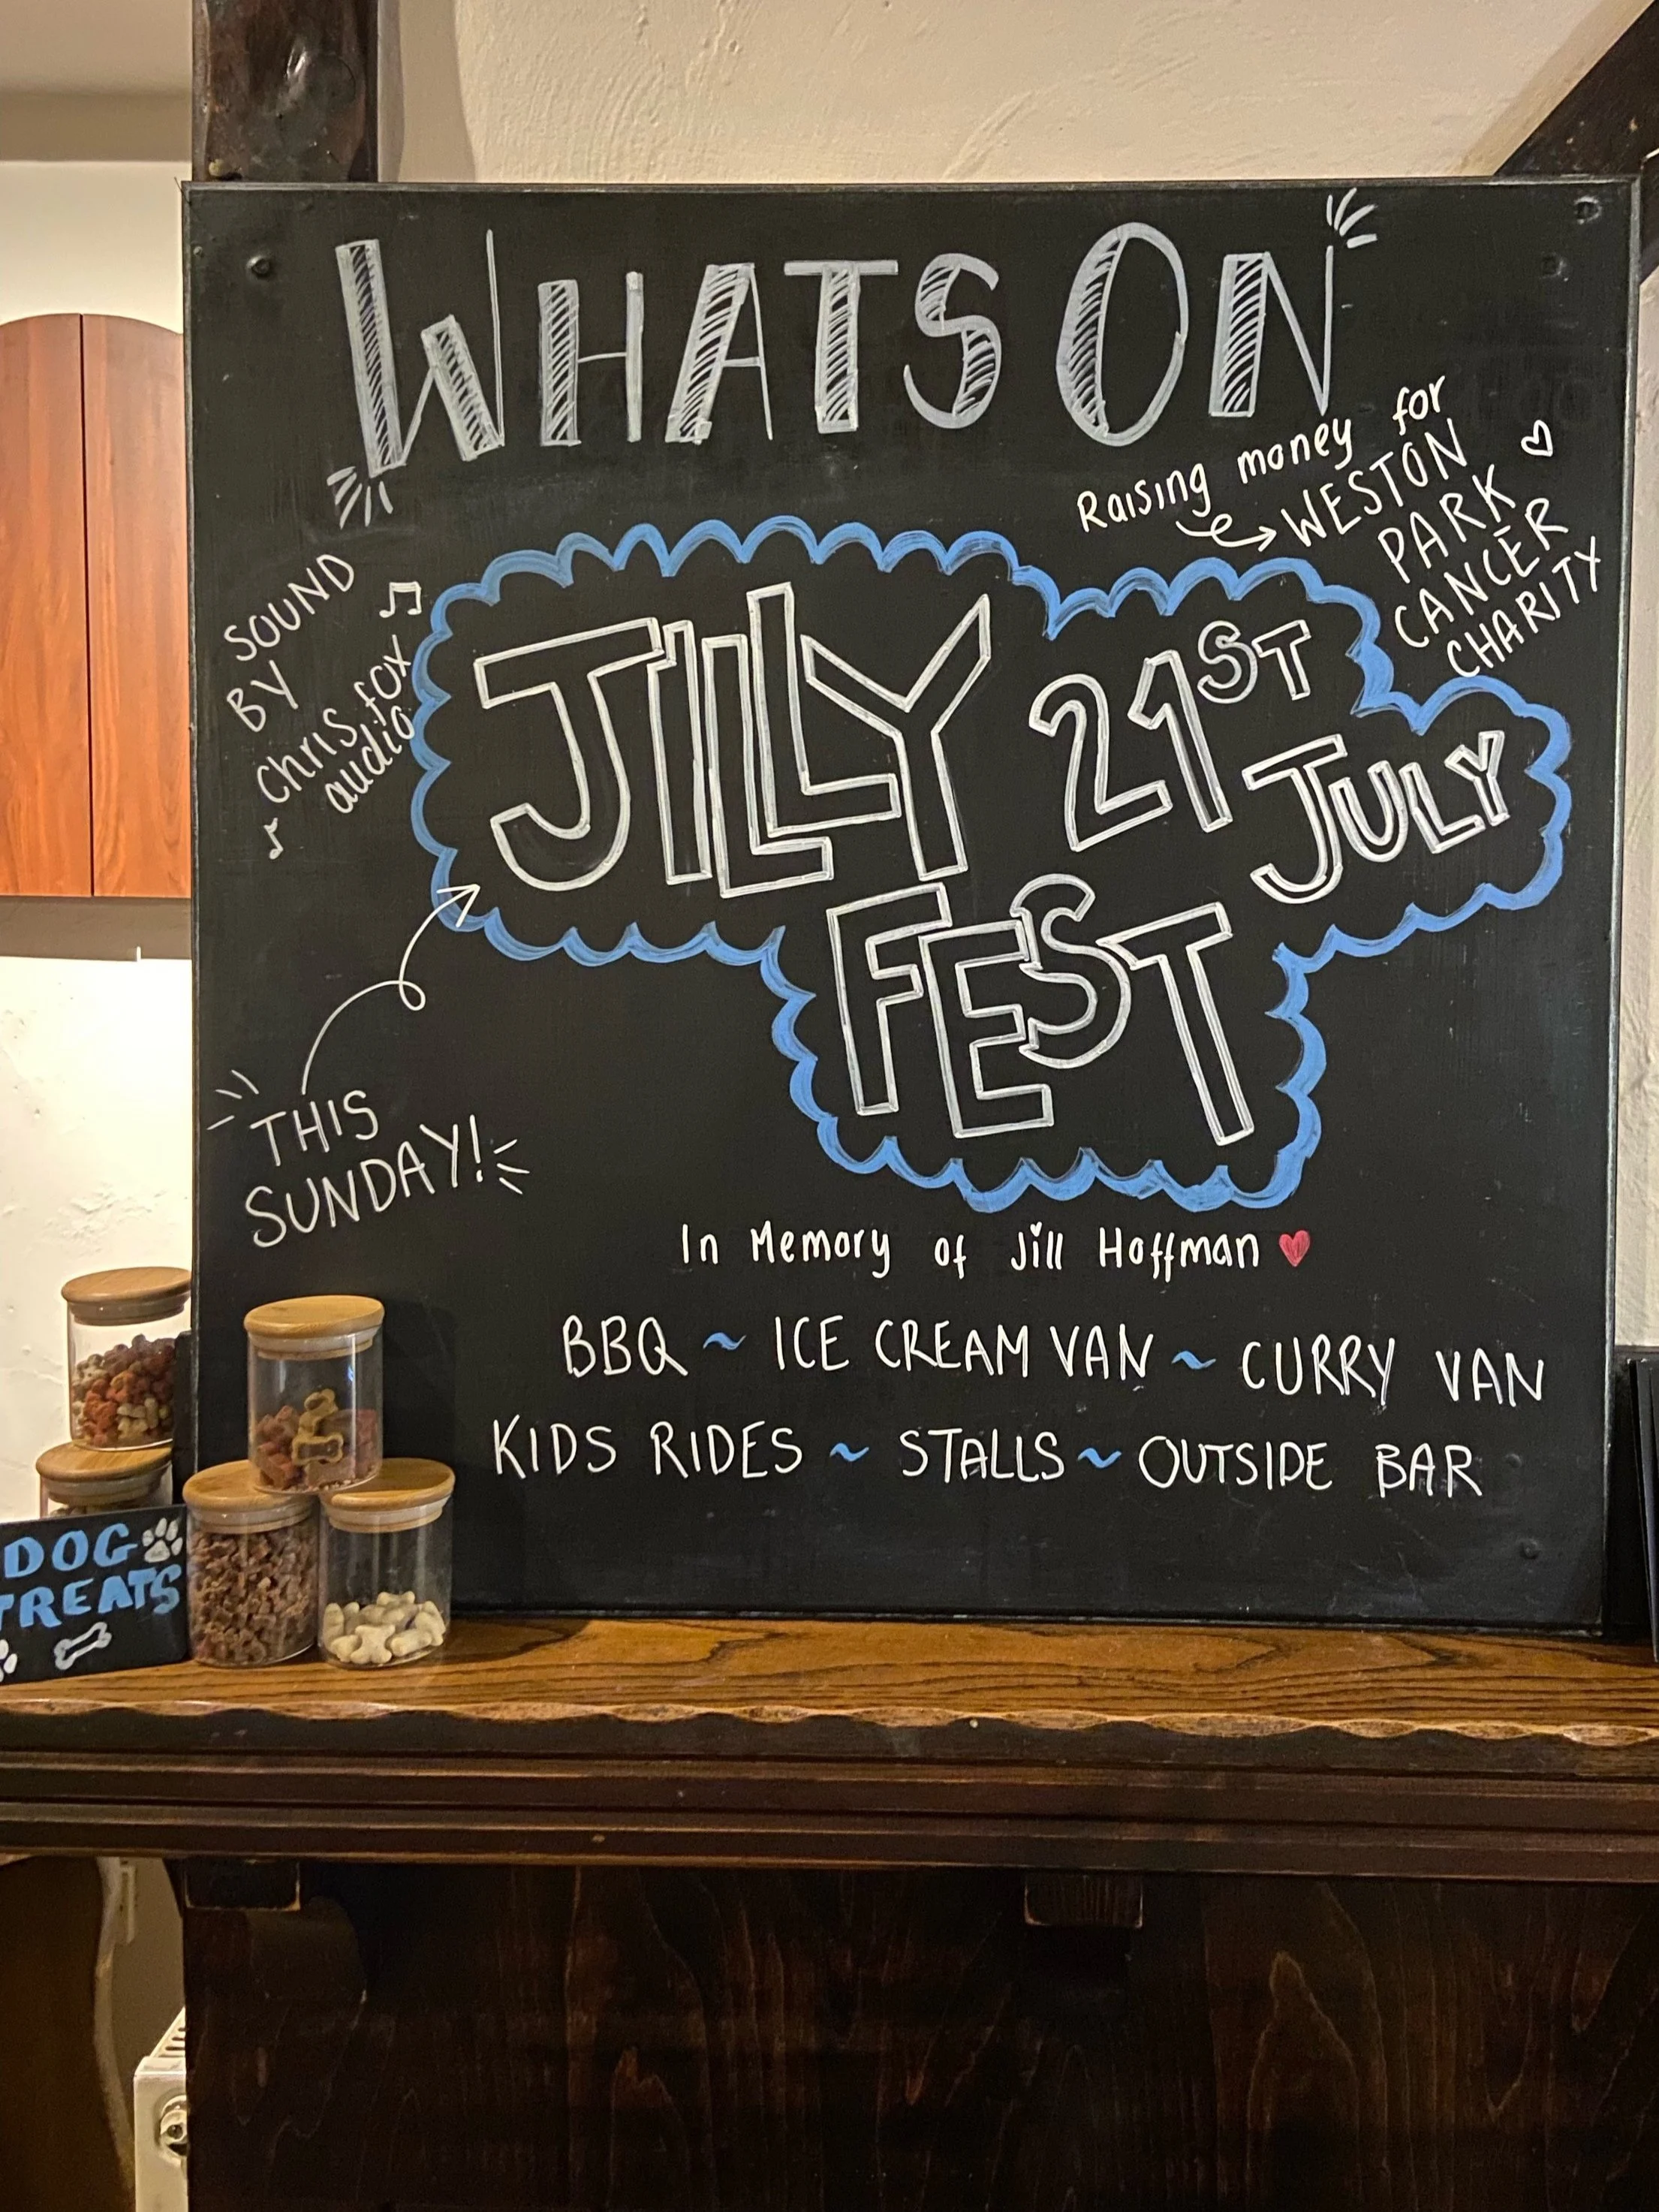 WHATS ON
Raising money for
WESTON
PARK
CANCER
CHARITY
SOUND
BY
Chris fox
audio
JILLY
21ST
JULY
FEST
THIS
SUNDAY!
In Memory of Jill Hoffman
BBQ ~ ICE CREAM VAN ~ CURRY VAN
KIDS RIDES ~ STALLS ~ OUTSIDE BAR
DOG
TREATS